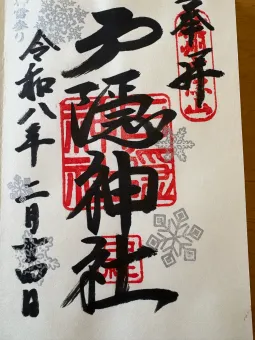 奉拝
戸隠神社
令和八年 二月十四日